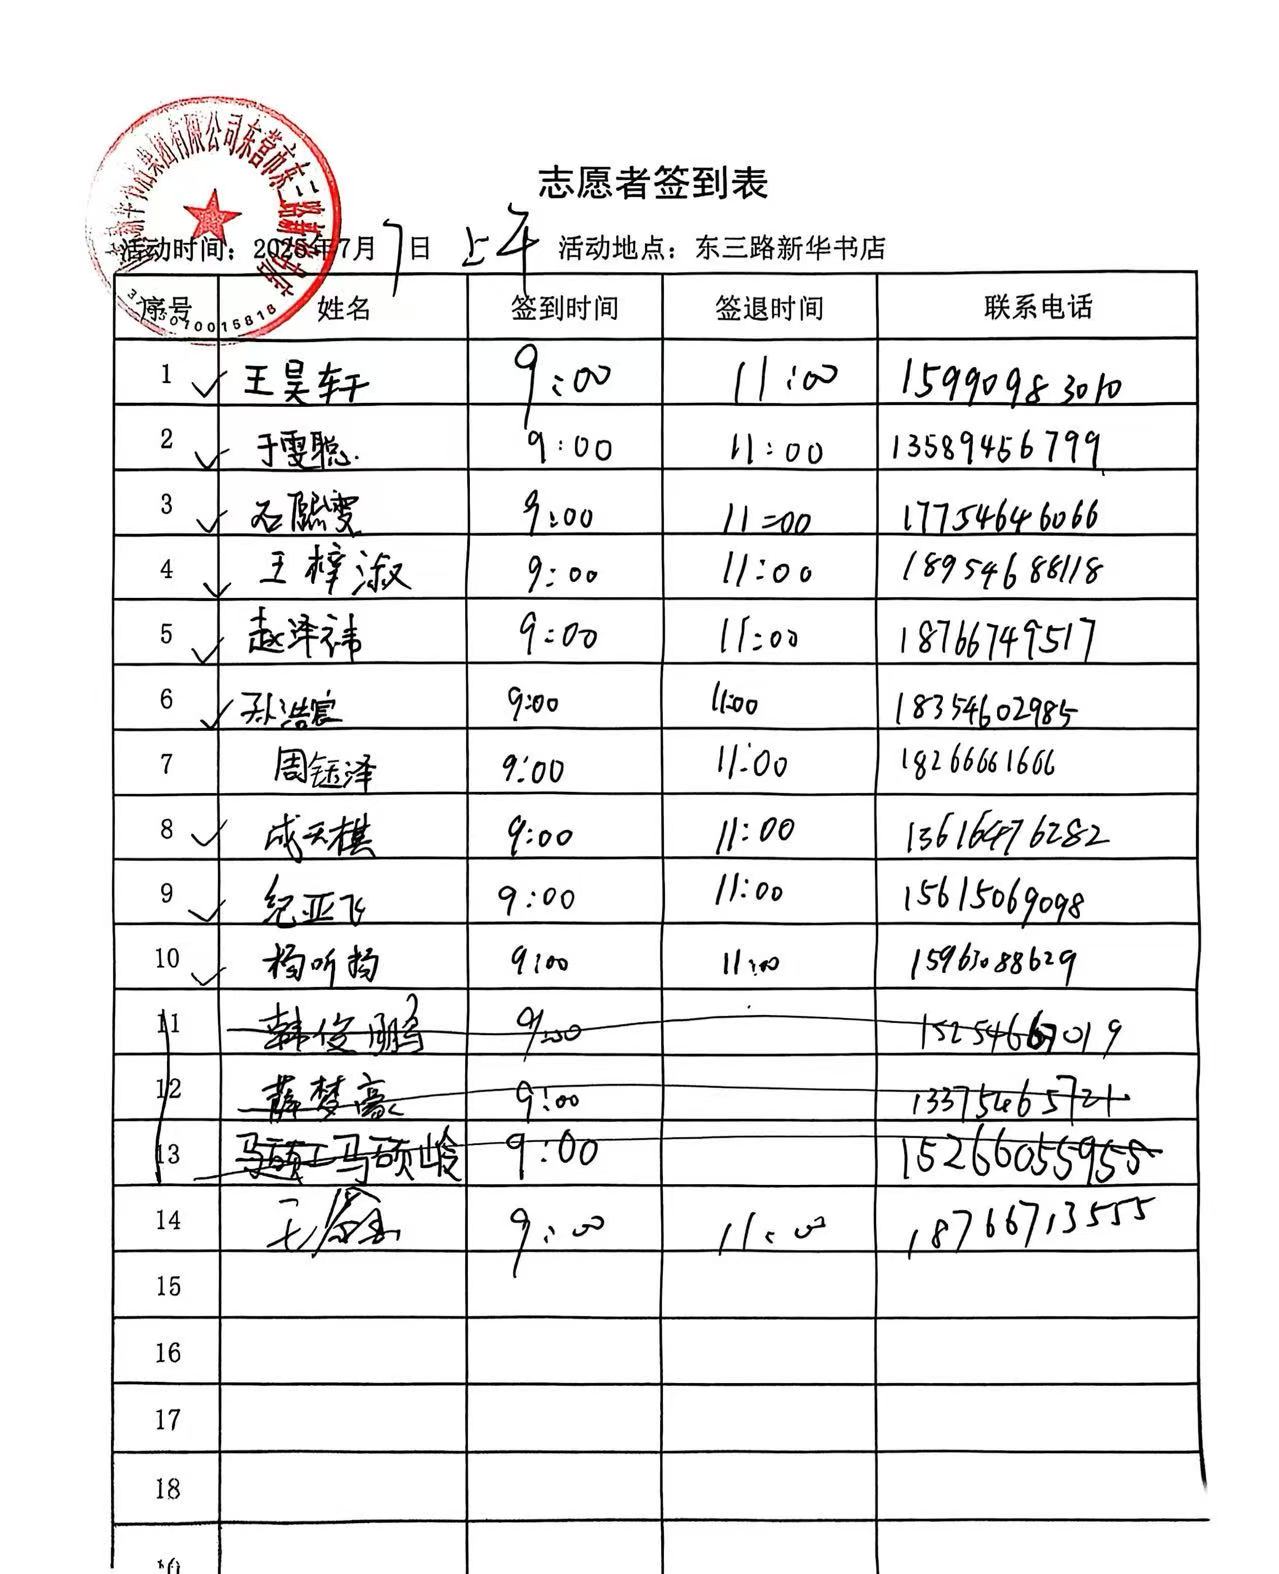 志愿者签到表
活动时间：2025年7月7日 上午 活动地点：东三路新华书店
序号 姓名 签到时间 签退时间 联系电话
1 王昊轩 9:00 11:00 15990983010
2 于雯聪 9:00 11:00 13589456799
3 石熙雯 9:00 11:00 17754646066
4 王梓淑 9:00 11:00 18954688118
5 赵泽祎 9:00 11:00 18766749517
6 孙浩宸 9:00 11:00 18354602985
7 周钰泽 9:00 11:00 18266661666
8 成天棋 9:00 11:00 13616476282
9 纪亚飞 9:00 11:00 15615069098
10 杨听扬 9:00 11:00 15963088629
11 韩俊鹏 9:00
12 薛梦豪 9:00 13375465721
13 马硕岭 9:00 15266055955
14 9:00 11:00 18766713555
15
16
17
18